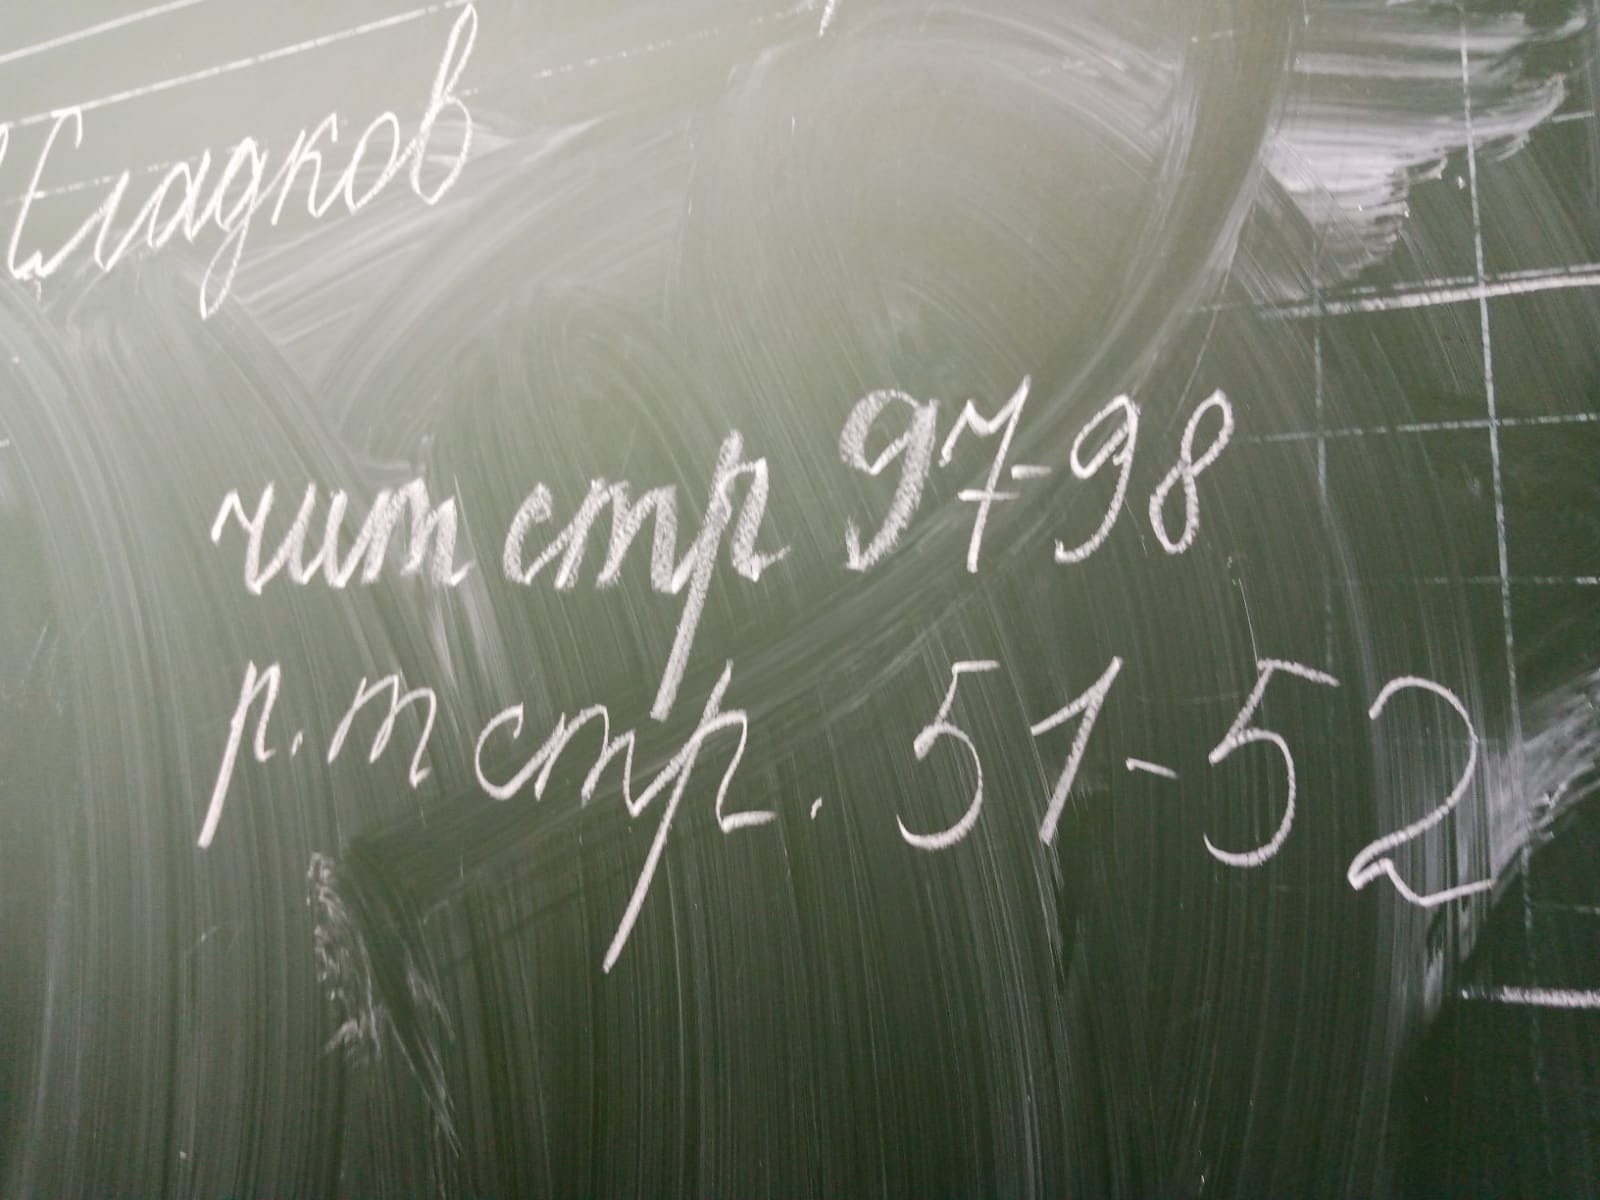 Гладков
чит стр 97-98
р.т стр. 51-52